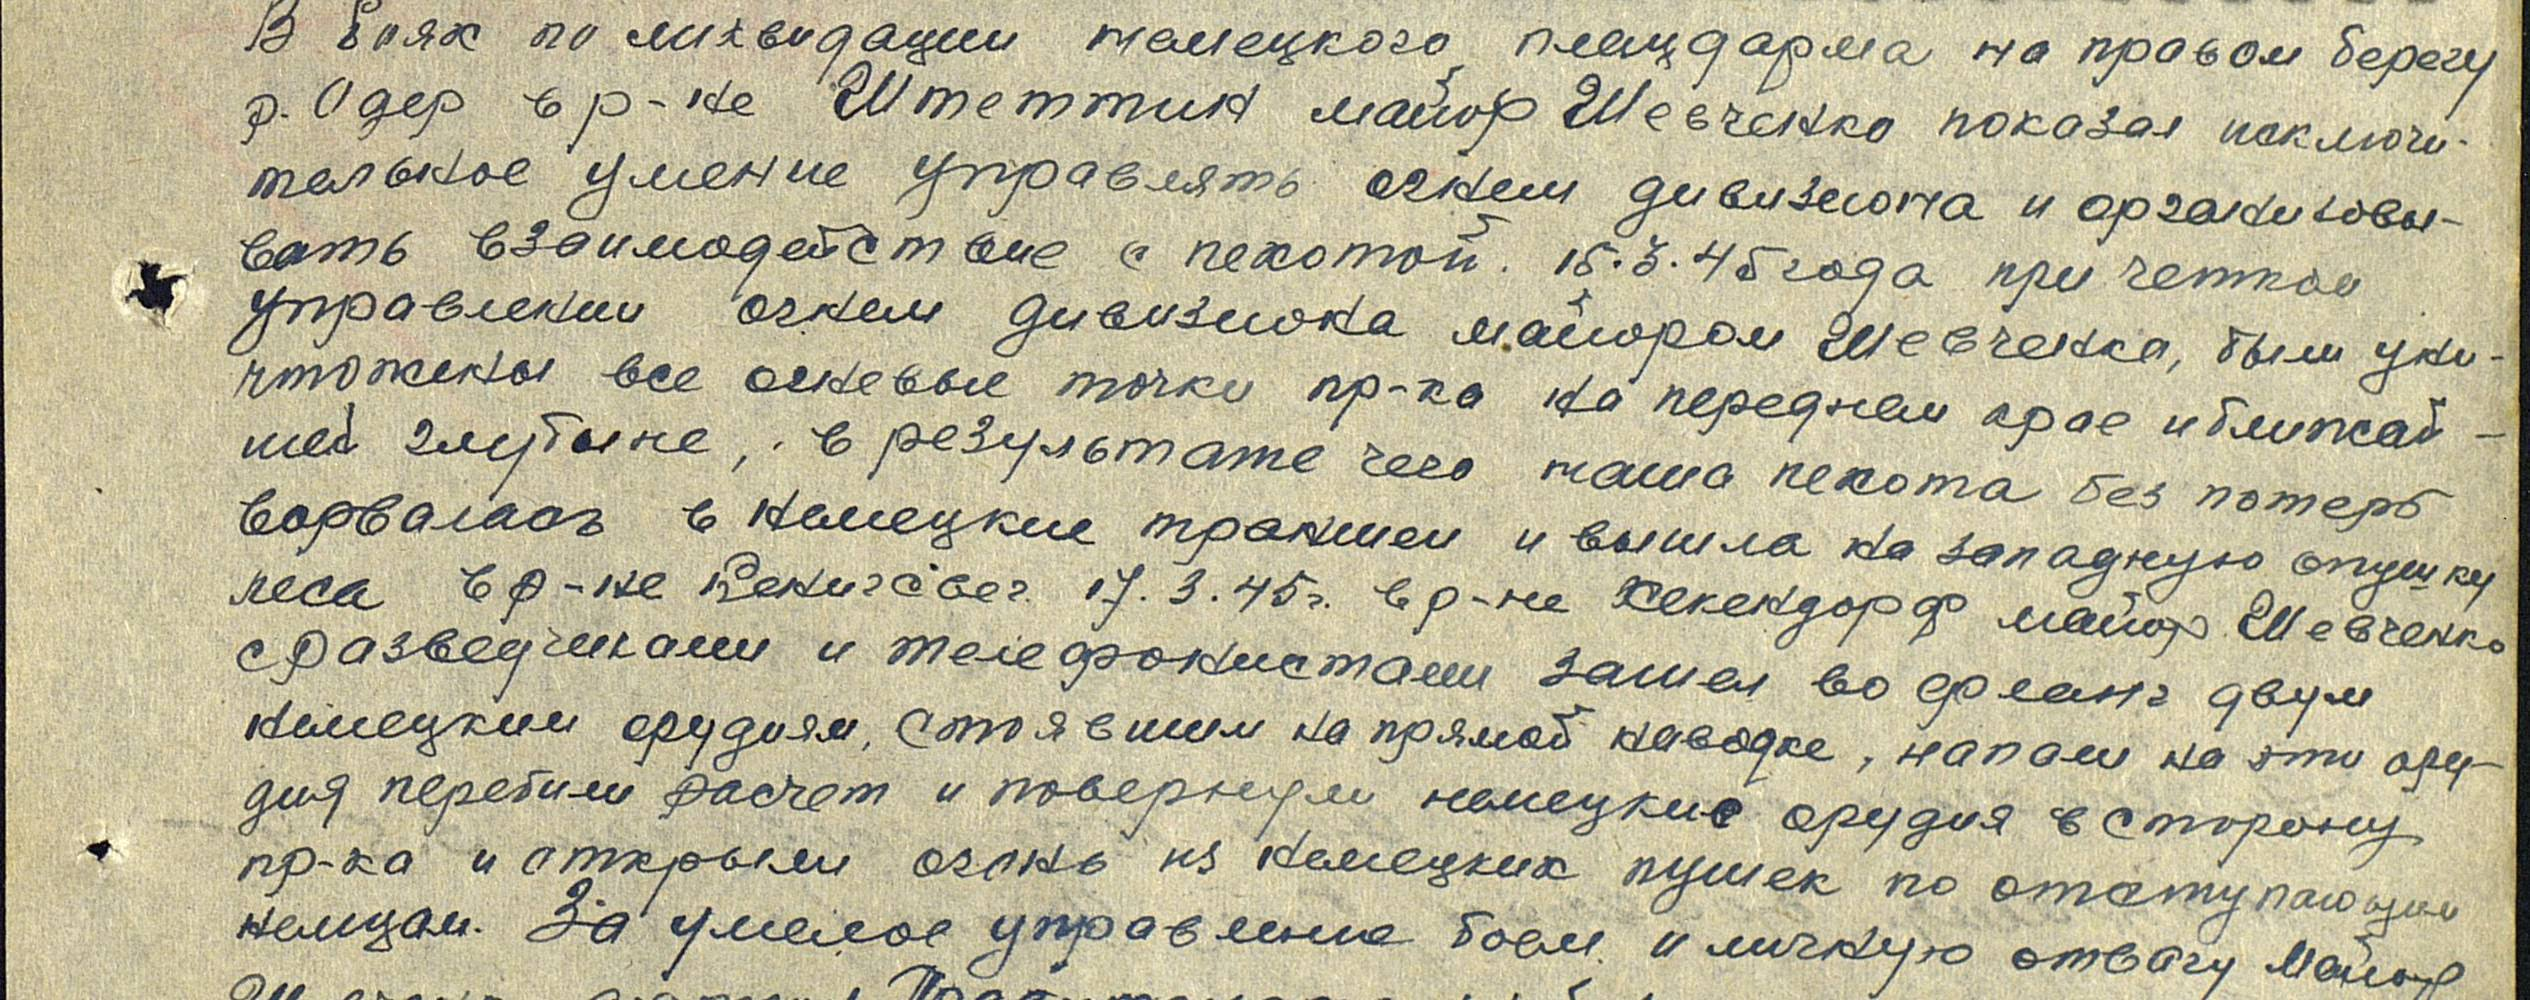 В боях по ликвидации немецкого плацдарма на правом берегу
р. Одер в р-не Штеттин майор Шевченко показал исключи-
тельное умение управлять огнем дивизиона и организовы-
вать взаимодействие с пехотой. 15.3.45 года при четком
управлении огнем дивизиона майором Шевченко, были уни-
чтожены все огневые точки пр-ка на переднем крае и ближай-
шей глубине, в результате чего наша пехота без потерь
ворвалась в немецкие траншеи и вышла на западную опушку
леса в р-не 17.3.45г. в р-не майор Шевченко
с разведчиками и телефонистами зашел во фланг двум
немецким орудиям, стоявшим на прямой наводке, напали на эти ору-
дия перебили расчет и повернули немецкие орудия в сторону
пр-ка и открыли огонь из немецких пушек по отступающим
немцам. За умелое управление боем и личную отвагу майор